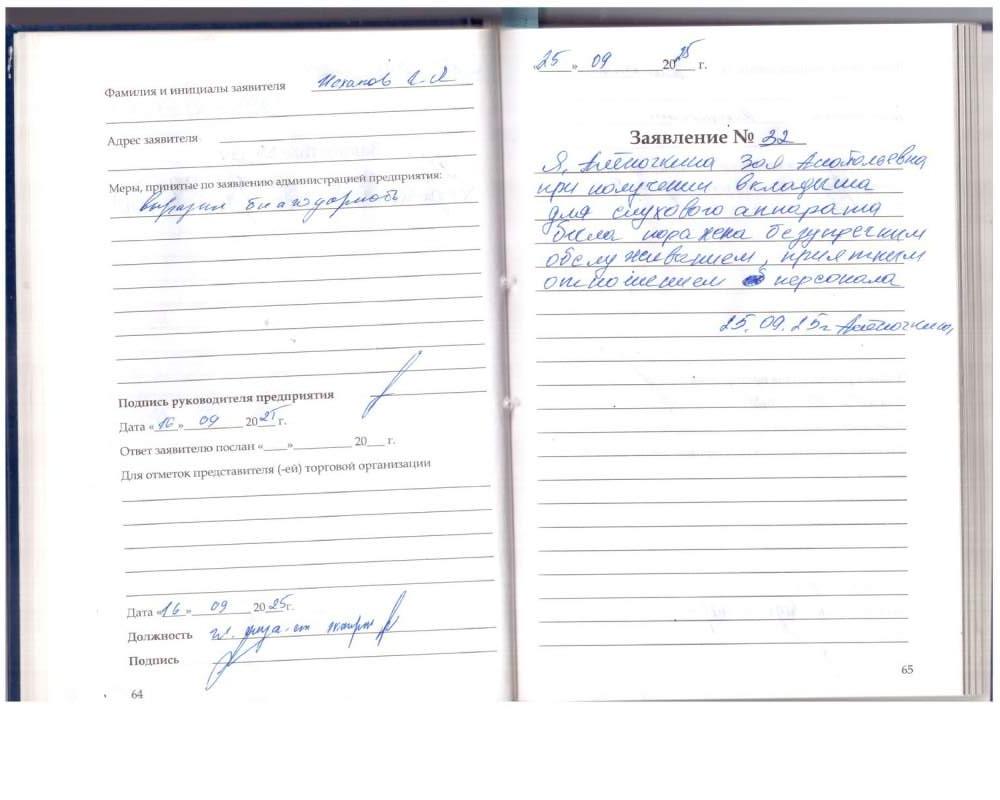 Фамилия и инициалы заявителя
Адрес заявителя
Меры, принятые по заявлению администрацией предприятия:
выразил благодарность
Подпись руководителя предприятия
Дата «16» 09 2025 г.
Ответ заявителю послан «____»__________ 20___ г.
Для отметок представителя (-ей) торговой организации
Дата «16» 09 2025г.
Должность
Подпись
64
«25» 09 2025 г.
Заявление № 32
Я, Зоя Анатольевна,
при получении вкладыша
для слухового аппарата
была поражена безупречним
обслуживанием, приятным
отношением персонала
25.09.25г
65